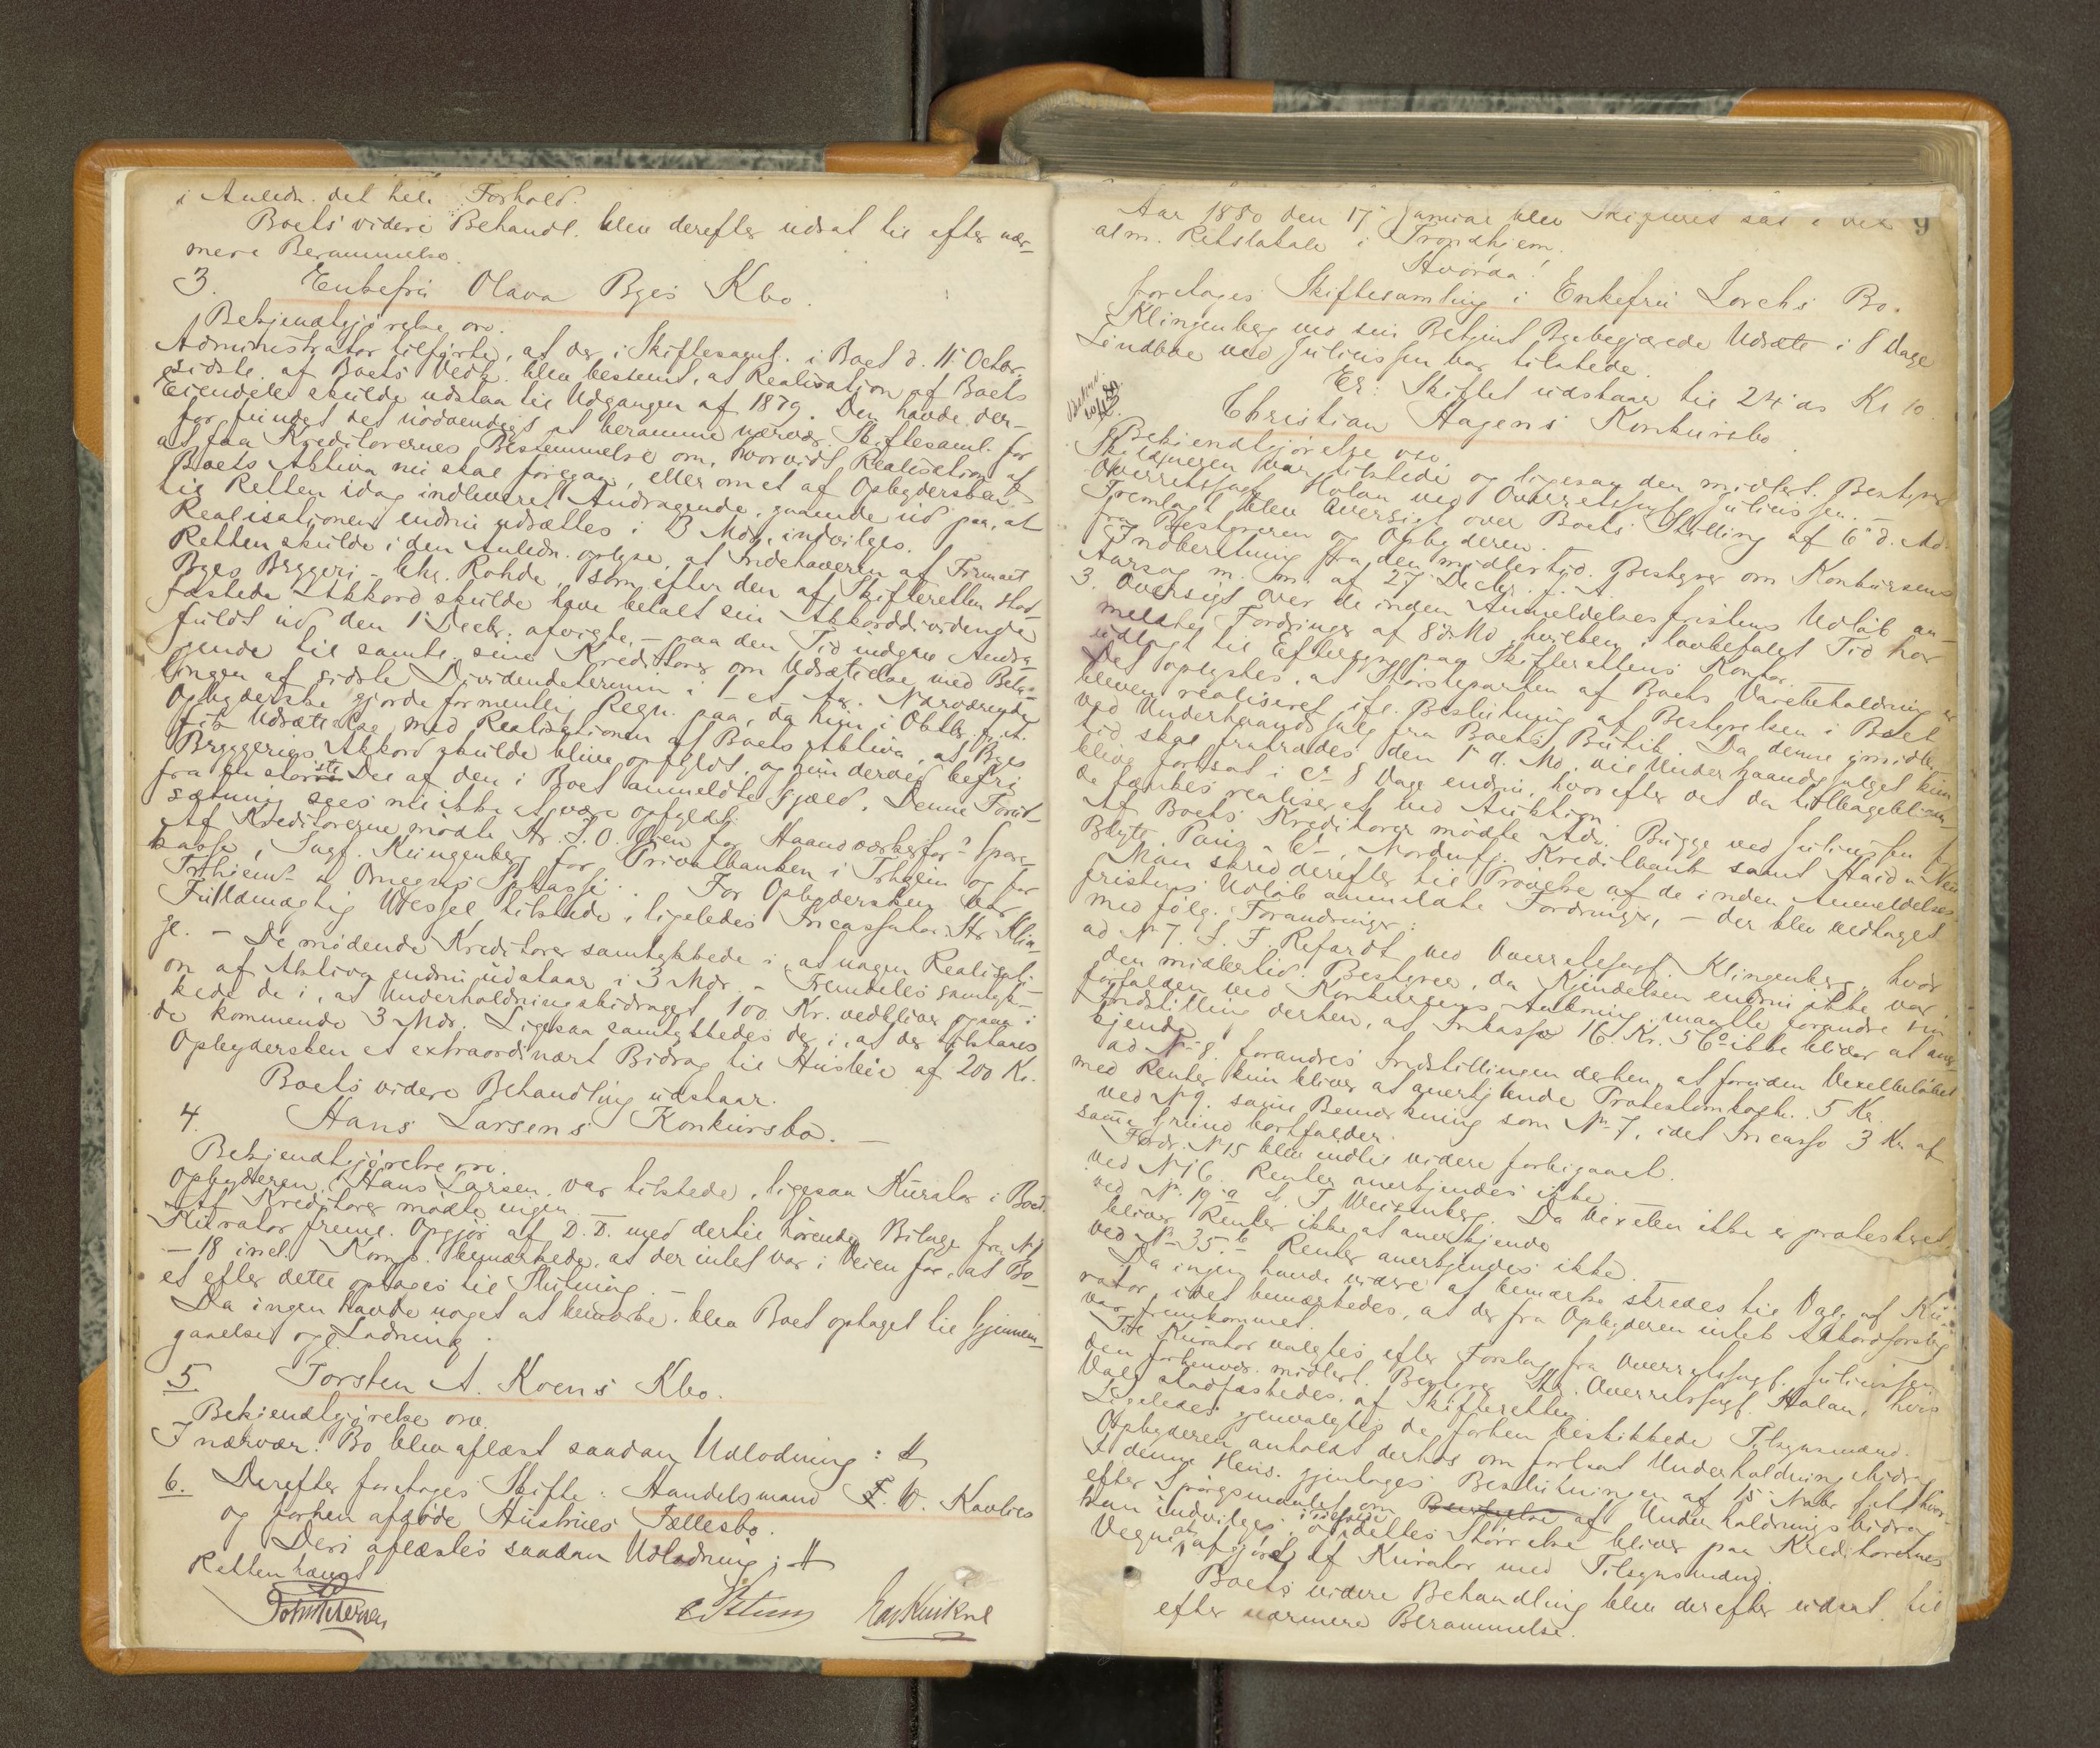 i Anledn. det hele Forhold.
Boets videre Behandl. blev derefter udsat til efter nær-
mere Berammelse.
3. Enkefru Olava Byes Kbo.
Bekjendtgjørelse ov.
Administrator tilførte, at der i Skiftesaml. i Boet d. 11' Octbr.
sidstl. af Boets Vedk. blev bestemt, at Realisation af Boets
Eiendele skulde udstaa til Udgangen af 1879. Den havde der-
for fundet det nødvendigt at beramme nærvær. Skiftesaml. for
at faa Kreditorernes Bestemmelse om, hvorvidt Realisation af
Boets Aktiva nu skal foregaa, eller om et af Opbydersken
til Retten idag indleveret Andragende, gaaende ud paa, at
Realisationen endnu udsættes i 3 Mdr, indvilges.
Retten skulde i den Anledn. oplyse, at Indehaveren af Firmaet
Byes Bryggeri - Chr. Rohde, som efter den af Skifteretten stad-
fæstede Akkord skulde have betalt sin Akkorddividende
fuldt ud den 1' Decbr. afvigte, - paa den Tid indgav Andra-
gende til samtl. sine Kreditorer om Udsættelse med Beta-
lingen af sidste Dividendetermin i et Aar. Nærværende
Opbyderske gjorde formentlig Regn. paa, da hun i Oktbr. f. A.
fik Udsættelse med Realisationen af Boets Aktiva, at Byes
Bryggeris Akkord skulde blive opfyldt, og hun derved befri
fra en største Del af den i Boet anmeldte Gjæld. Denne Forud-
sætning sees nu ikke at være opfyldt.
Af Kreditorerne mødte Hr. J. O. Øien for Haandværkerfor.s Spare-
kasse, Sagf. Klingenberg for Privatbanken i Trhjem og for
Trhjems & Omegns Spkasse. For Opbydersken var
Fuldmægtig Wessel tilstede, ligeledes Incassator Hr Klin-
ge. - De mødende Kreditorer samtykkede i, at nogen Realisati-
on af Aktiva endnu udstaar i 3 Mdr. - Fremdeles samtyk-
kede de i, at Underholdningsbidraget 100 Kr. vedbliver ogsaa i
de kommende 3 Mdr. Ligesaa samtykkedes der i, at der tilstaaes
Opbydersken et extraordinært Bidrag til Husleie af 200 Kr.
Boets videre Behandling udstaar.
4. Hans Larsens Konkursbo. -
Bekjendtgjørelse ov.
Opbyderen, Hans Larsen, var tilstede, ligesaa Kurator i Boet.
Af Kreditorer mødte ingen.
Kurator freml. Opgjør af D. D. med dertil hørende Bilage fra No 1
- 18 incl. Komp. bemærkede, at der intet var i Veien for, at Bo-
et efter dette optages til Slutning. -
Da ingen havde noget at bemærke, blev Boet optaget til Gjennem-
gaaelse og Lodning.
5. Torsten A. Koens Kbo.
Bekjendtgjørelse ov.
I nærvær. Bo blev aflæst saadan Udlodning: #
6. Derefter foretoges Skifte: Handelsmand F. W. Kavlies
og forhen afdøde Hustrues Fællesbo.
Deri aflæstes saadan Udlodning: #
Retten hævet
9
Aar 1880 den 17' Januar blev Skifteret sat i det
alm. Retslokale i Trondhjem,
Hvorda!
foretoges Skiftesamling i Enkefru Lorchs Bo.
Klingenberg ved sin Betjent Bye begjærede Udsætt. i 8 Dage
Lindboe ved Juliussen var tilstede.
Er: Skiftet udstaar til 24' ds Kl 10.
Christian Hagens Konkursbo.
Bekjendtgjørelse ov.
Skyldneren var tilstede og ligesaa den midlert. Bestyrer
Overretssagf. Halan ved Overretssagf. Juliussen. -
Fremlagt blev Oversigt over Boets Stilling af 6' d. Md.
fra Bestyreren og Opbyderen.
Indberetning fra den midlertid. Bestyrer om Konkursens
Aarsag m. m. af 27' Decbr. f. A.
3. Oversigt over de inden Anmeldelsesfristens Udløb an-
meldte Fordringer af 8' ds Md, hvilken i lovbefalet Tid har
udlagt til Eftersyn paa Skifterettens Kontor.
Det oplystes, at Størsteparten af Boets Varebeholdning er
bleven realiseret ifl. Beslutning af Bestyrelsen i Boet
ved Underhaandssalg fra Boets Butik. Da denne imidler-
tid skal fratrædes den 1' d. Md. vil Underhaandssalget kun
blive fortsat i ca 8 Dage endnu, hvorefter det da tilbageblivn-
de tænkes realiseret ved Auktion.
Af Boets Kreditorer mødte Adv. Bugge ved Juliussen for
Blytt, Paus & Co, Nordenfj. Kreditbank samt Haid & Neu
Man skred derefter til Prøvelse af de inden Anmeldelses-
fristens Udløb anmeldte Fordringer, - der blev vedtaget
med følg. Forandringer:
ad No 7. J. F. Refardt ved Overretssagf. Klingenberg, hvor
den midlertid. Bestyrer, da Kjendelsen endnu ikke var
forfalden ved Konkursens Aabning, maatte forandre sin
Indstilling derhen, at Inkasso 16 Kr. 56 ø ikke bliver at aner-
kjende.
ad No 8. forandres Indstillingen derhen, at foruden Vexelbeløbet
med Renter kun bliver at anerkjende Protestomkostn. 5 Kr.
ved No 9. samme Bemærkning som No 7, idet Incasso 3 Kr. af
samme Grund bortfalder.
Fordr. No 15 blev indtil videre forbigaaet.
ved No 16. Renter anerkjendes ikke. -
ved No 19 a L. F. Weisenberg. Da Vexelen ikke er protesteret
bliver Renter ikke at anerkjende
ved No 35 b Renter anerkjendes ikke.
Da ingen havde videre at bemærke skredes til Valg af Ku-
rator, idet bemærkedes, at der fra Opbyderen intet Akkordforslag
var fremkommet.
Til Kurator valgtes efter Forslag fra Overretssagf. Juliussen
den forhenvær. midlert. Bestyrer Hr. Overretssagf. Halan, hvis
Valg stadfæstedes af Skifteretten.
Ligeledes gjenvalgtes de forhen beskikkede Tilsynsmænd.
Opbyderen anholdt derhos om fortsat Underholdningsbidrag.
I denne Hens. gjentages Beslutningen af 15' Novbr f. A. hvor-
efter Spørgsmaalet om af Underholdningsbidrag
kan indvilges og dettes Størrelse bliver paa Kreditorernes
Vegne at afgjøre af Kurator med Tilsynsmænd.
Boets videre Behandling blev derefter udsat til
efter nærmere Berammelse.